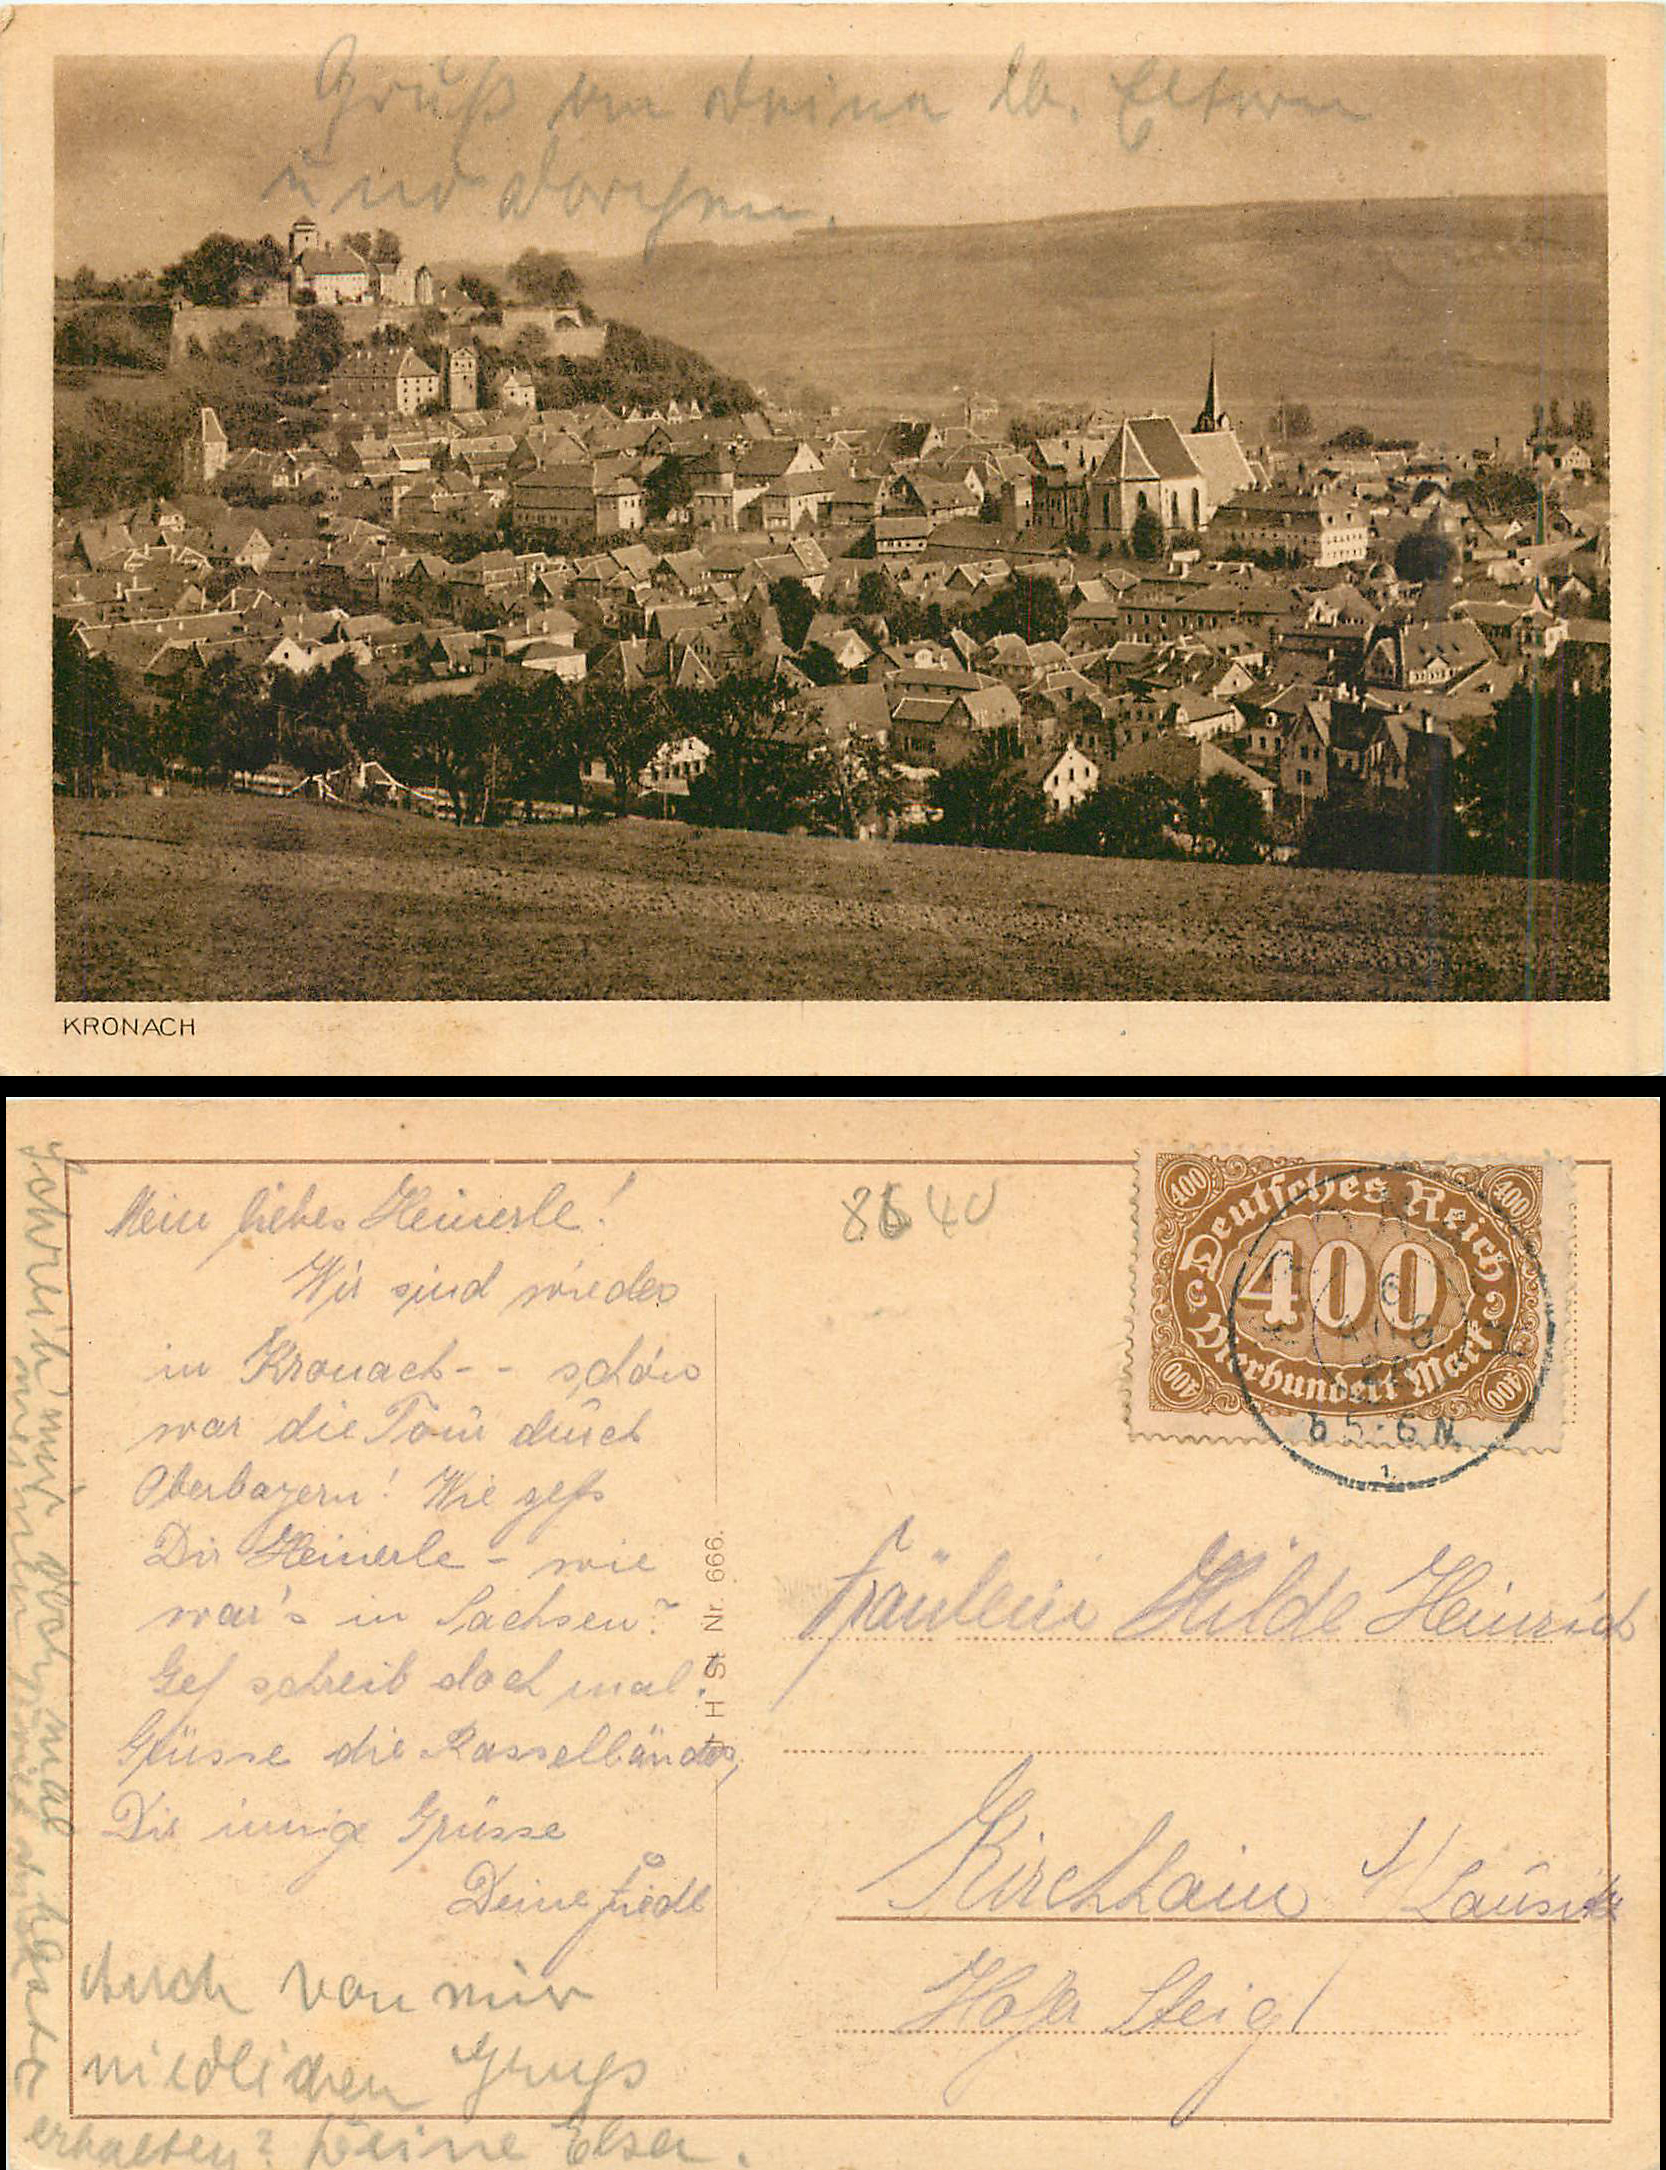 Gruß von deinen lb. Eltern
und
KRONACH
Mein liebes Heinerle!
Wir sind wieder
in Kronach - - schön
war die Tour durch
Oberbayern! Wie gehts
Dir Heinerle - wie
war's in Sachsen?
Geh schreib doch mal.
Grüsse die Rasselbande,
Dir innige Grüsse
Deine Friedl
Auch von mir
niedlichen Gruß
erhalten? Deine Elsa.
Schreib' mir doch mal hast
Du meinen
H St Nr. 666.
8640
400 400
Deutsches Reich
400
Vierhundert Mark
400 400
5-6 N
1
Fräulein Hilde Heinrich
Kirchhain N/Lausitz
Steig